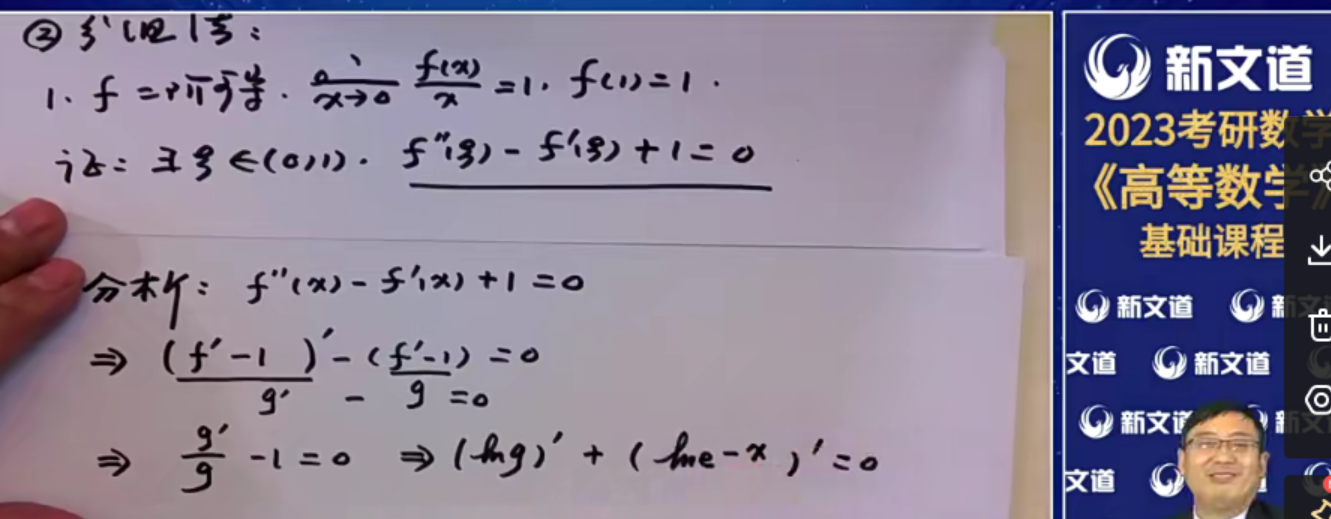 ② 分组法:
1. f 二阶可导. lim x→0 f(x)/x = 1. f(1)=1.
证: ∃ξ∈(0,1). f''(ξ) - f'(ξ) + 1 = 0
分析: f''(x) - f'(x) + 1 = 0
⇒ (f'-1)' - (f'-1) = 0
g' - g = 0
⇒ g'/g - 1 = 0 ⇒ (ln g)' + (ln e^-x)' = 0
新文道
2023考研数学
《高等数学》
基础课程
新文道 新文
文道 新文道
新文道 新文
文道